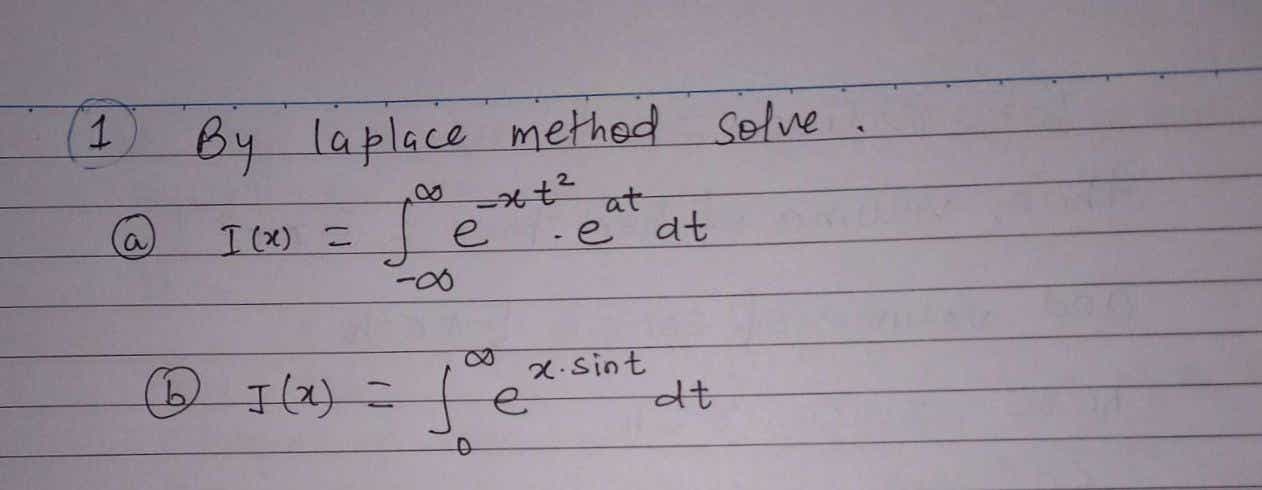 ① By laplace method solve.
ⓐ I(x) = ∫_{-∞}^{∞} e^{-xt²} . e^{at} dt
ⓑ I(x) = ∫_{0}^{∞} e^{x.sint} dt